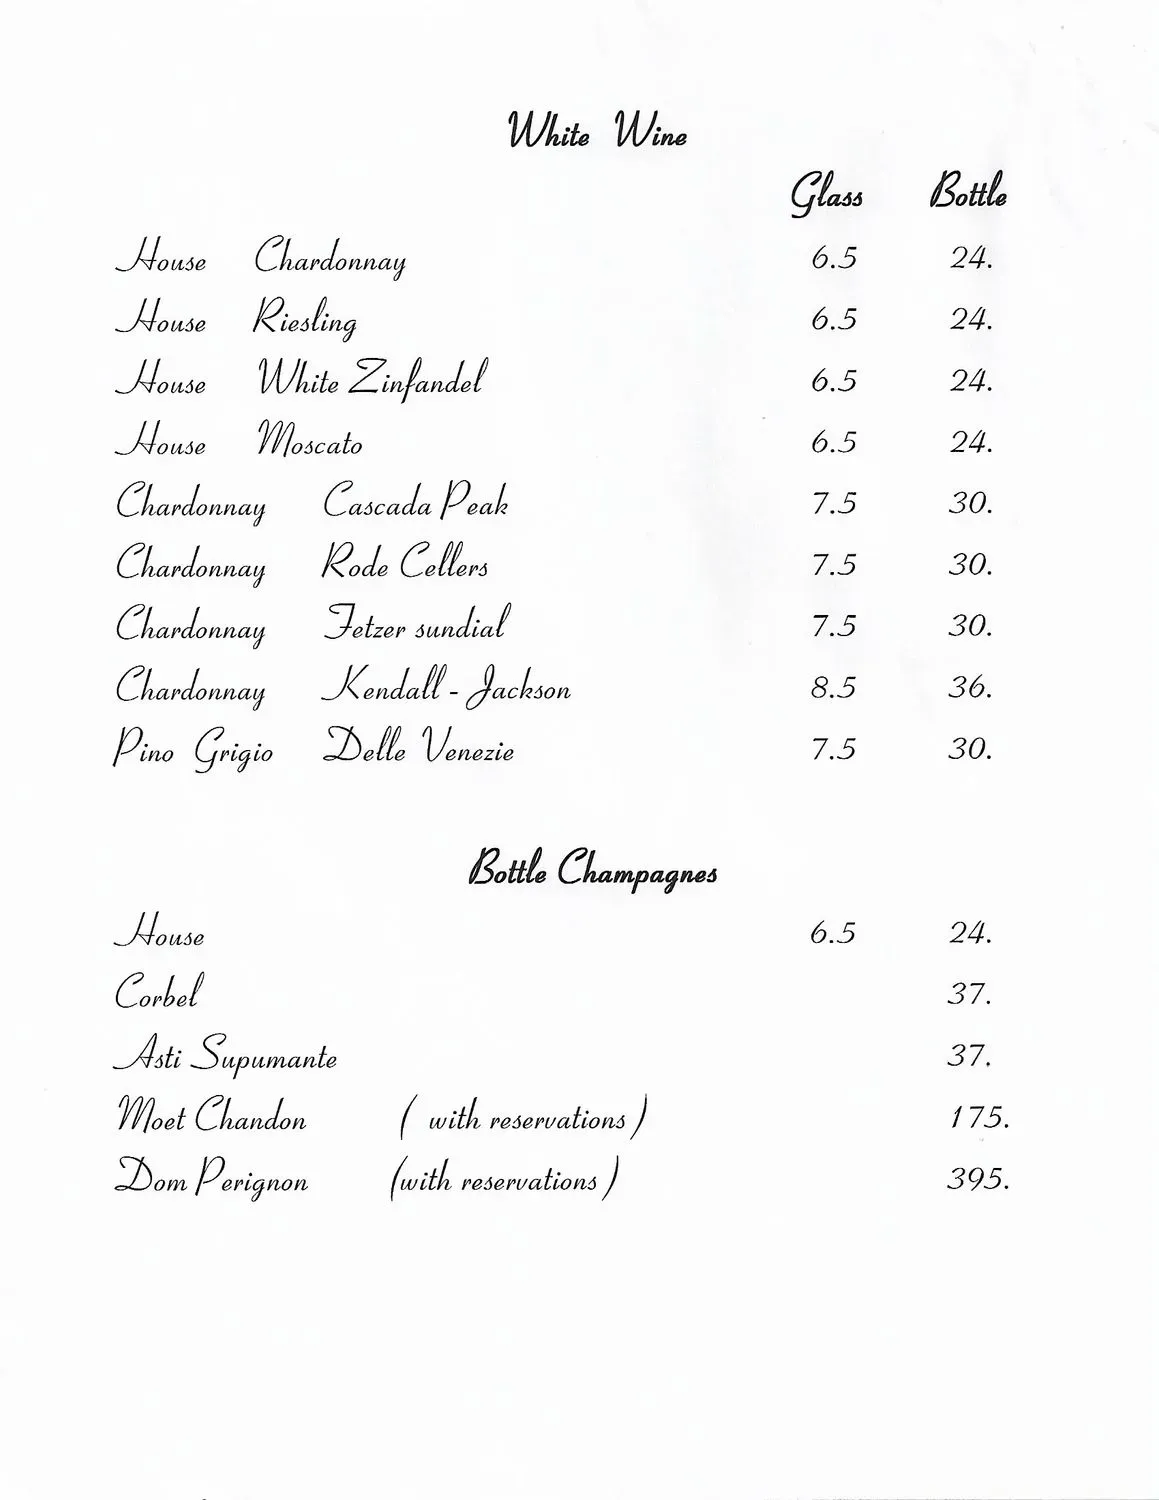 White Wine
Glass Bottle
House Chardonnay 6.5 24.
House Riesling 6.5 24.
House White Zinfandel 6.5 24.
House Moscato 6.5 24.
Chardonnay Cascada Peak 7.5 30.
Chardonnay Rode Cellers 7.5 30.
Chardonnay Fetzer sundial 7.5 30.
Chardonnay Kendall - Jackson 8.5 36.
Pino Grigio Delle Venezie 7.5 30.
Bottle Champagnes
House 6.5 24.
Corbel 37.
Asti Supumante 37.
Moet Chandon ( with reservations ) 175.
Dom Perignon (with reservations ) 395.